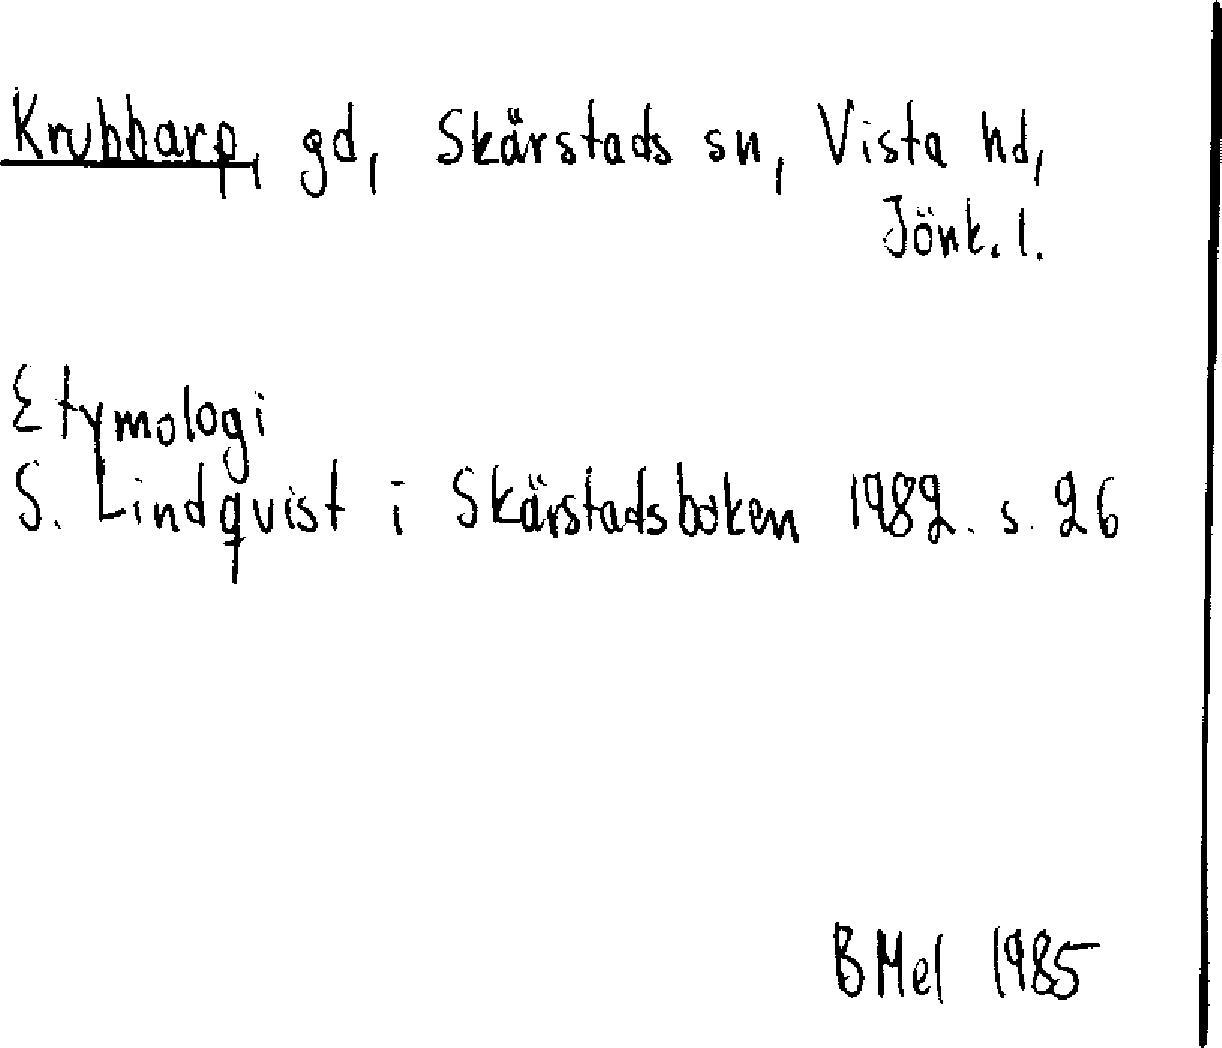 Krubbarp, gd, Skärstads sn, Vista hd,
Jönk. l.
Etymologi
S. Lindqvist i Skärstadsboken 1982. s. 26
BMel 1985